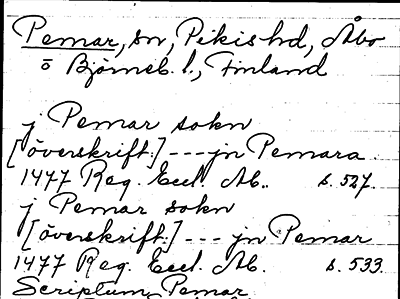 Pemar, sn, Pikis hd, Åbo
o Björneb. l., Finland
j Pemar sokn
[överskrift:] --- jn Pemara.
1477 Reg. Eccl. Ab. s. 527.
j Pemar sokn
[överskrift:] --- jn Pemar
1477 Reg. Eccl. Ab. s. 533.
Scriptum Pemar